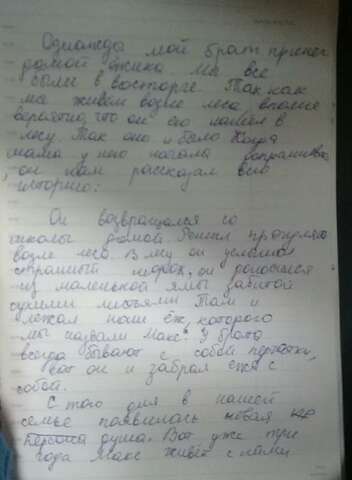 Однажды мой брат принёс
домой ёжика Мы все
были в восторге. Так как
мы живём возле леса, вполне
вероятно, что он его нашёл в
лесу. Так оно и было Когда
мама у него начала спрашивать
, он нам рассказал всю
историю:
Он возвращался со
школы домой. Решил прогуляться
возле леса. В лесу он услышал
странный шорох, он доносился
из маленькой ямы забитой
сухими листьями Там и
лежал наш ёж, которого
мы назвали Макс. У брата
всегда бывают с собой перчатки,
вот он и забрал ежа с
собой.
С того дня в нашей
семье появилась новая
персона душа. Вот уже три
года Макс живёт с нами